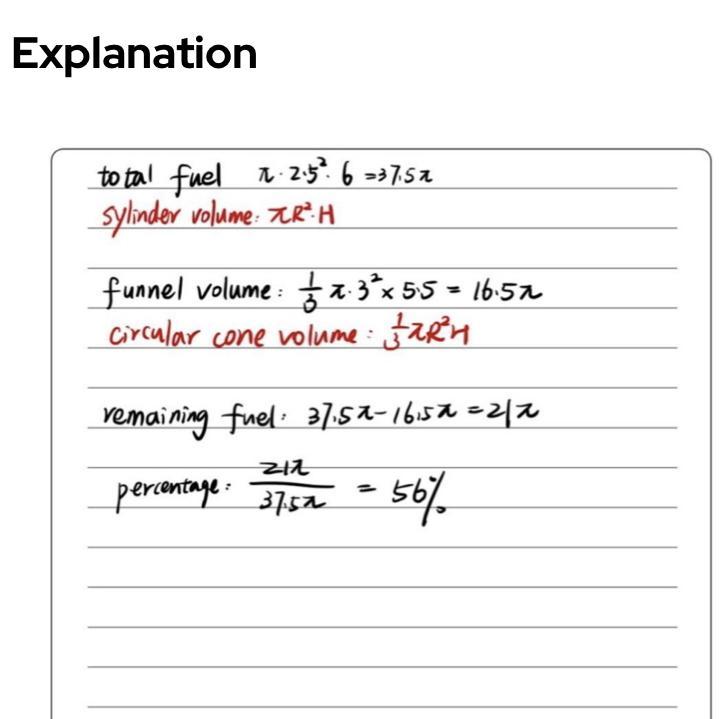 Explanation
total fuel π·2·5²·6 =37.5π
sylinder volume: πR²·H
funnel volume: 1/3 π·3²×5.5 = 16.5π
circular cone volume: 1/3 πR²H
remaining fuel: 37.5π-16.5π =21π
percentage: 21π/37.5π = 56%